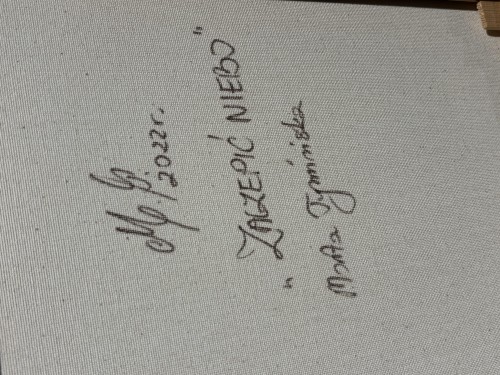 2022r.
„ZACZEPIĆ NIEBO”
Marta Tymińska